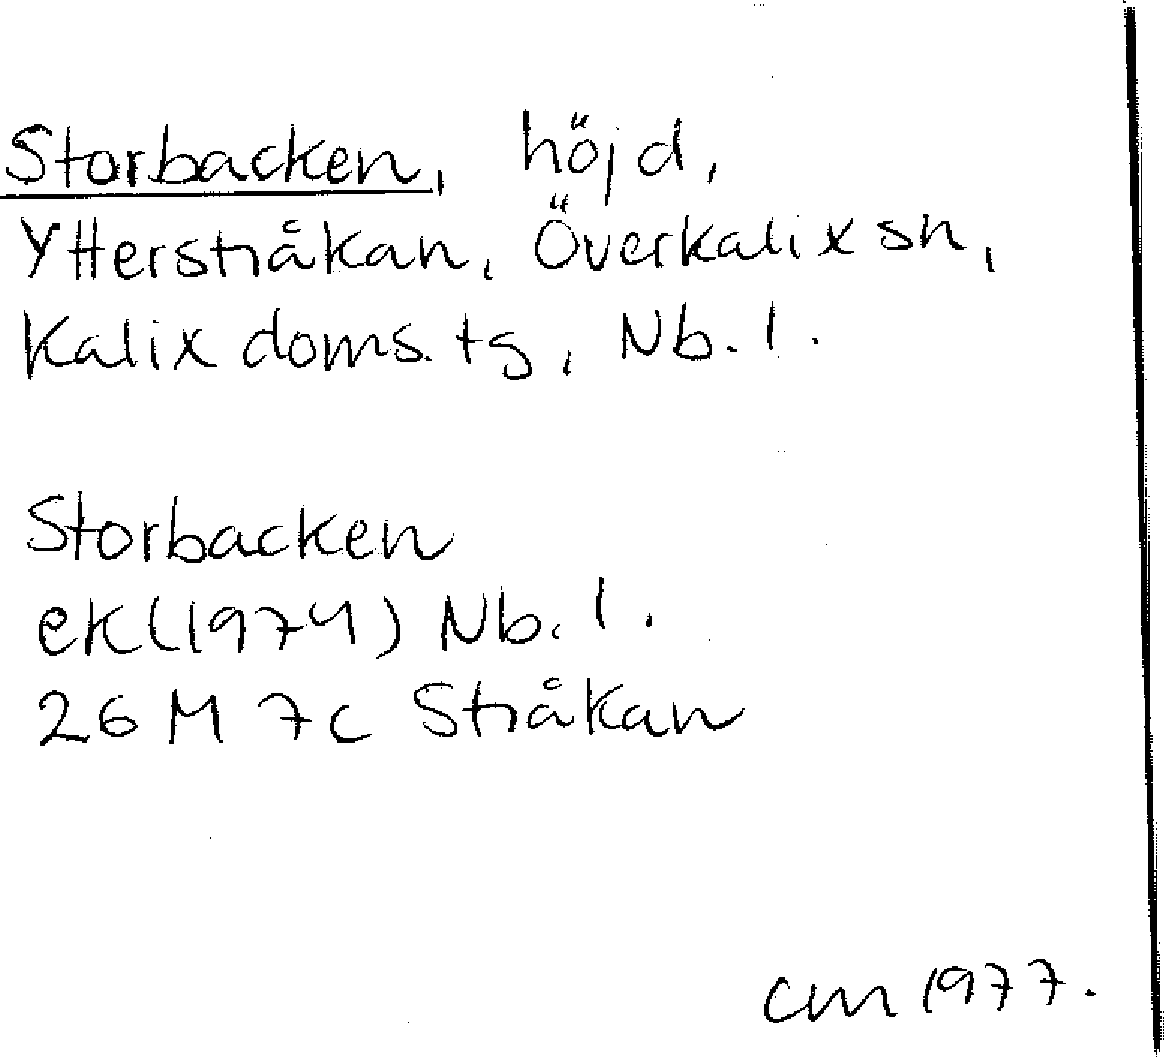 Storbacken, höjd,
Ytterstråkan, Överkalix sn,
Kalix doms. tg, Nb. l.
Storbacken
ek (1974) Nb. l.
26 M 7c Stråkan
cm 1977.